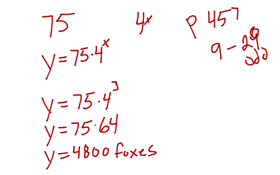 75 4ˣ P 457
9 - 29
y = 75·4ˣ
y = 75·4³
y = 75·64
y = 4800 foxes